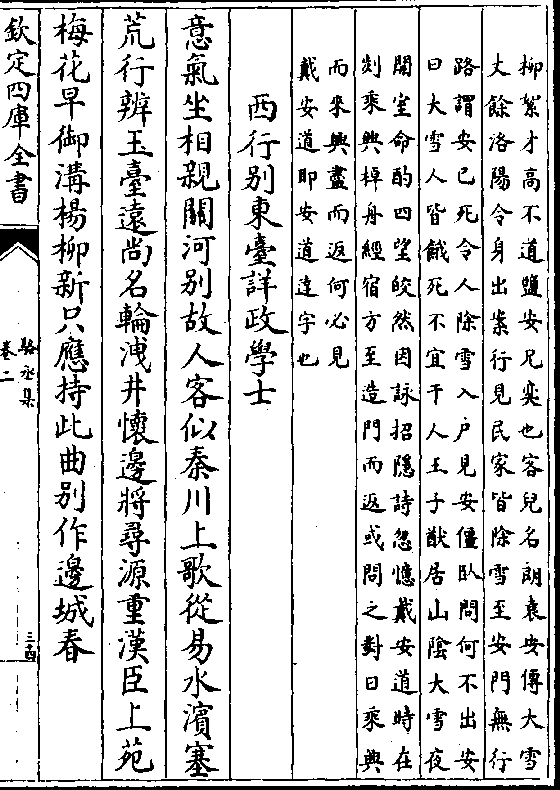 柳絮才高不道鹽安兄奕也客兒名朗袁安傳大雪
丈餘洛陽令身出案行見民家皆除雪至安門無行
路謂安已死令人除雪入户見安僵臥問何不出安
曰大雪人皆餓死不宜干人王子猷居山陰大雪夜
開室命酌四望皎然因詠招隱詩忽憶戴安道時在
剡乘興棹舟經宿方至造門而返或問之對曰乘興
而來興盡而返何必見
戴安道即安道逵字也
西行别東臺詳政學士
意氣坐相親關河别故人客似秦川上歌從易水濱塞
荒行辨玉臺遠尚名輪洩井懷邊將尋源重漢臣上苑
梅花早御溝楊栁新只應持此曲别作邊城春
欽定四庫全書
駱丞集
卷二
三古